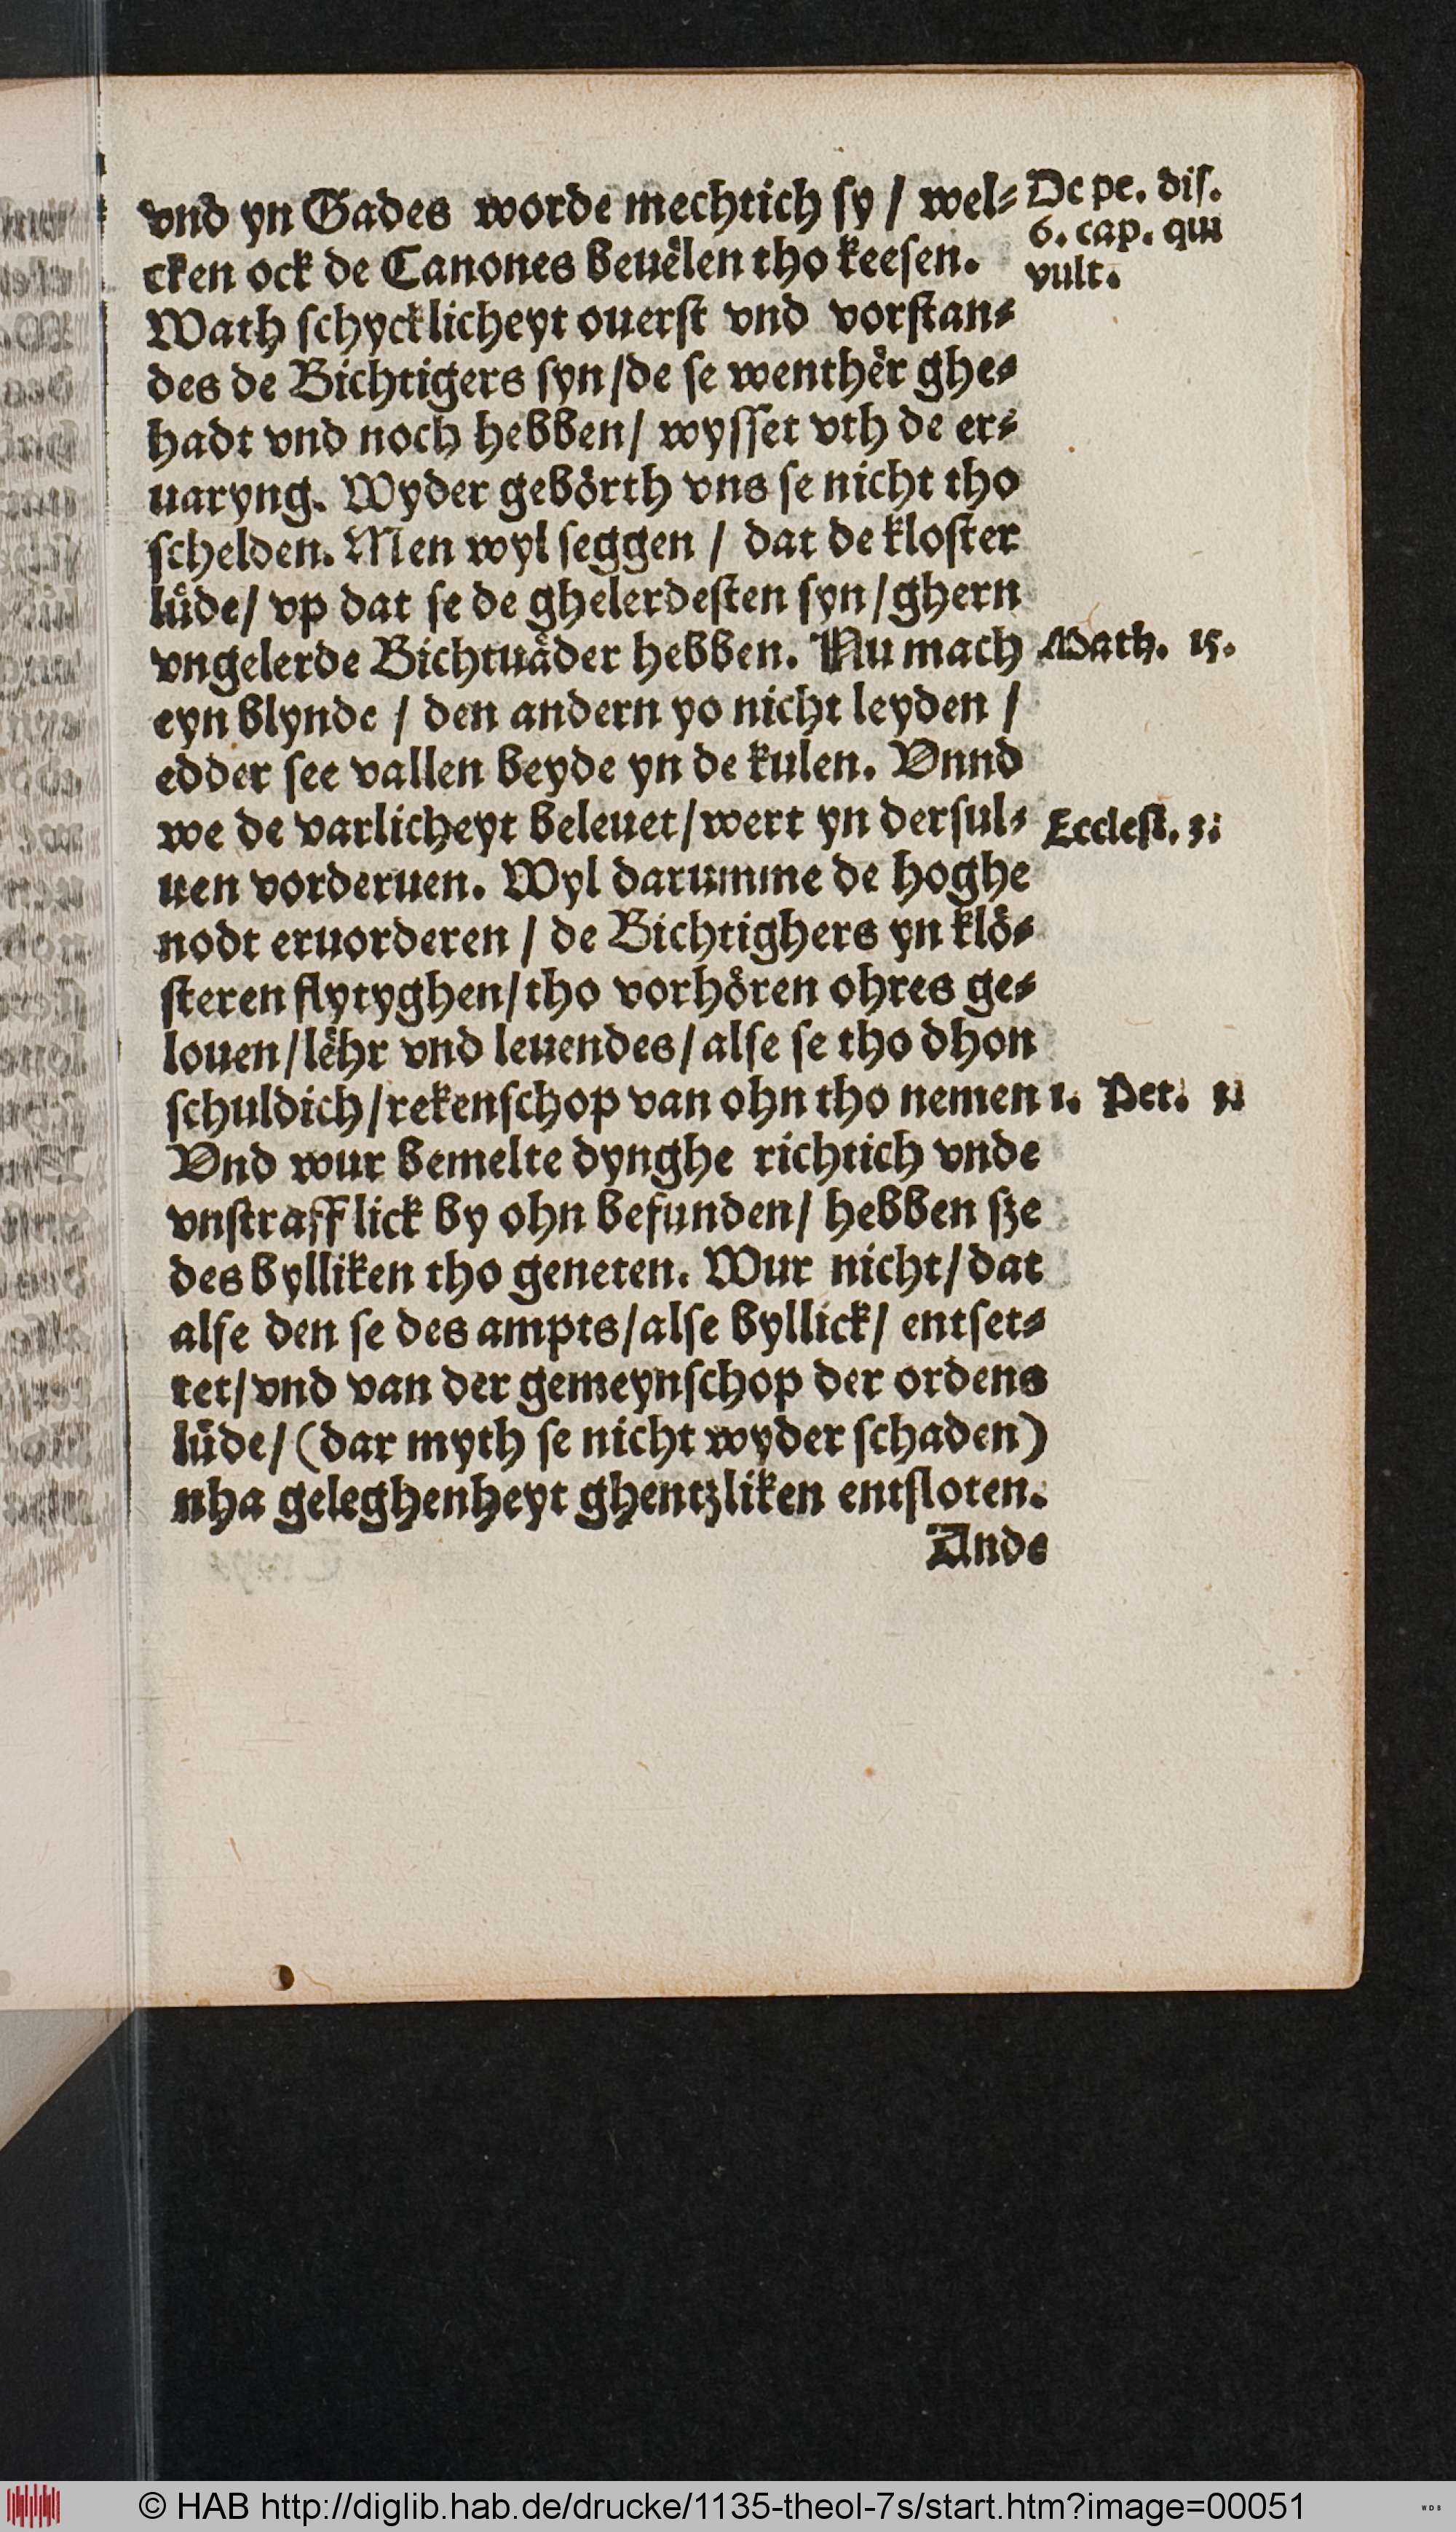 vnd yn Gades worde mechtich ſy / wel⸗
cken ock de Canones beuëlen tho keeſen.
Wath ſchycklicheyt ouerſt vnd vorſtan⸗
des de Bichtigers ſyn/de ſe wenthër ghe⸗
hadt vnd noch hebben/ wyſſet vth de er⸗
uaryng. Wyder gebörth vns ſe nicht tho
ſchelden. Men wyl ſeggen / dat de kloſter
lüde/ vp dat ſe de ghelerdeſten ſyn/ghern
vngelerde Bichtuäder hebben. Nu mach
eyn blynde / den andern yo nicht leyden /
edder ſee vallen beyde yn de kulen. Vnnd
we de varlicheyt beleuet/wert yn derſul⸗
uen vorderuen. Wyl darumme de hoghe
nodt eruorderen / de Bichtighers yn klö⸗
ſteren flytyghen/tho vorhören ohres ge⸗
louen/lëhr vnd leuendes/alſe ſe tho dhon
ſchuldich/rekenſchop van ohn tho nemen
Vnd wur bemelte dynghe richtich vnde
vnſtrafflick by ohn befunden/ hebben ſze
des bylliken tho geneten. Wur nicht/dat
alſe den ſe des ampts/alſe byllick/ entſet⸗
tet/vnd van der gemeynſchop der ordens
lüde/(dar myth ſe nicht wyder ſchaden)
nha geleghenheyt ghentzliken entſloten.
Ande
De pe. diſ.
6. cap. qui
vult.
Math. 15.
Eccleſi. 3.
1. Pet. 3.
© HAB http://diglib.hab.de/drucke/1135-theol-7s/start.htm?image=00051